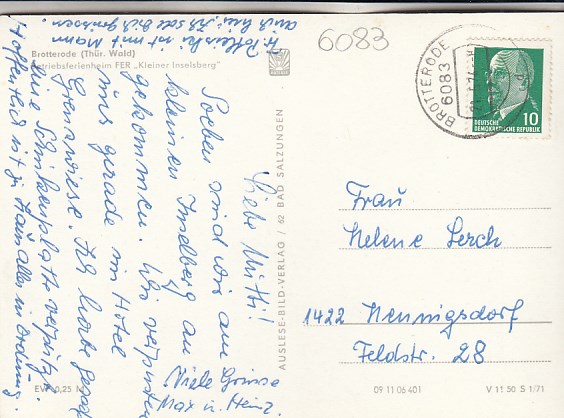 Brotterode (Thür. Wald)
Betriebsferienheim FER „Kleiner Inselsberg"
Liebe Mutti!
Soeben sind wir am
kleinen Inselberg an
gekommen. Wir verpusten
uns gerade im Hotel
Grenzwiese. Ich habe gerade
eine Schinkenplatte verputzt.
Hoffentlich ist zu Hause alles in Ordnung.
Viele Grüsse
Max u. Heinz.
ist mit Mann
auch hier. Ich soll Dich grüssen
EVP 0,25 M
AUSLESE-BILD-VERLAG / 62 BAD SALZUNGEN
6083
BROTTERODE
6083
10
DEUTSCHE
DEMOKRATISCHE REPUBLIK
Frau
Helene Lerch
1422 Hennigsdorf
Feldstr. 28
09 11 06 401
V 11 50 S 1/71